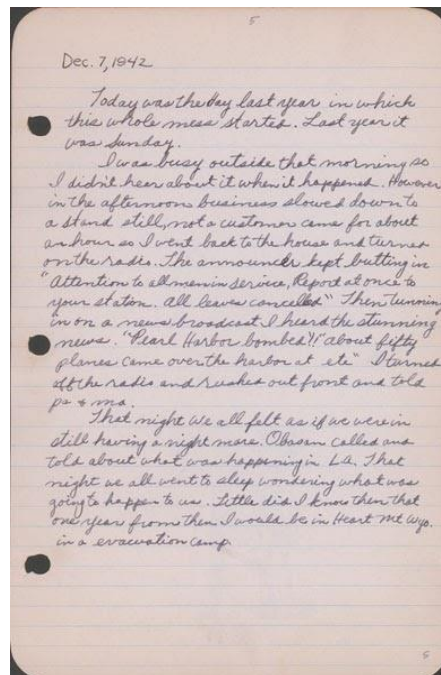 5
Dec. 7, 1942
Today was the day last year in which
this whole mess started. Last year it
was Sunday.
I was busy outside that morning so
I didn't hear about it when it happened. However
in the afternoon business slowed down to
a stand still, not a customer came for about
an hour so I went back to the house and turned
on the radio. The announcer kept butting in
"Attention to all men in service, Report at once to
your station. All leaves cancelled" Then tunning
in on a news broadcast I heard the stunning
news. "Pearl Harbor bombed"! "about fifty
planes came over the harbor at etc" I turned
off the radio and rushed out front and told
pa & ma.
That night we all felt as if we were in
still having a night mare. Obasan called and
told about what was happening in L.A. That
night we all went to sleep wondering what was
going to happen to us. Little did I know then that
one year from then I would be in Heart Mt Wyo.
in a evacuation camp.
5